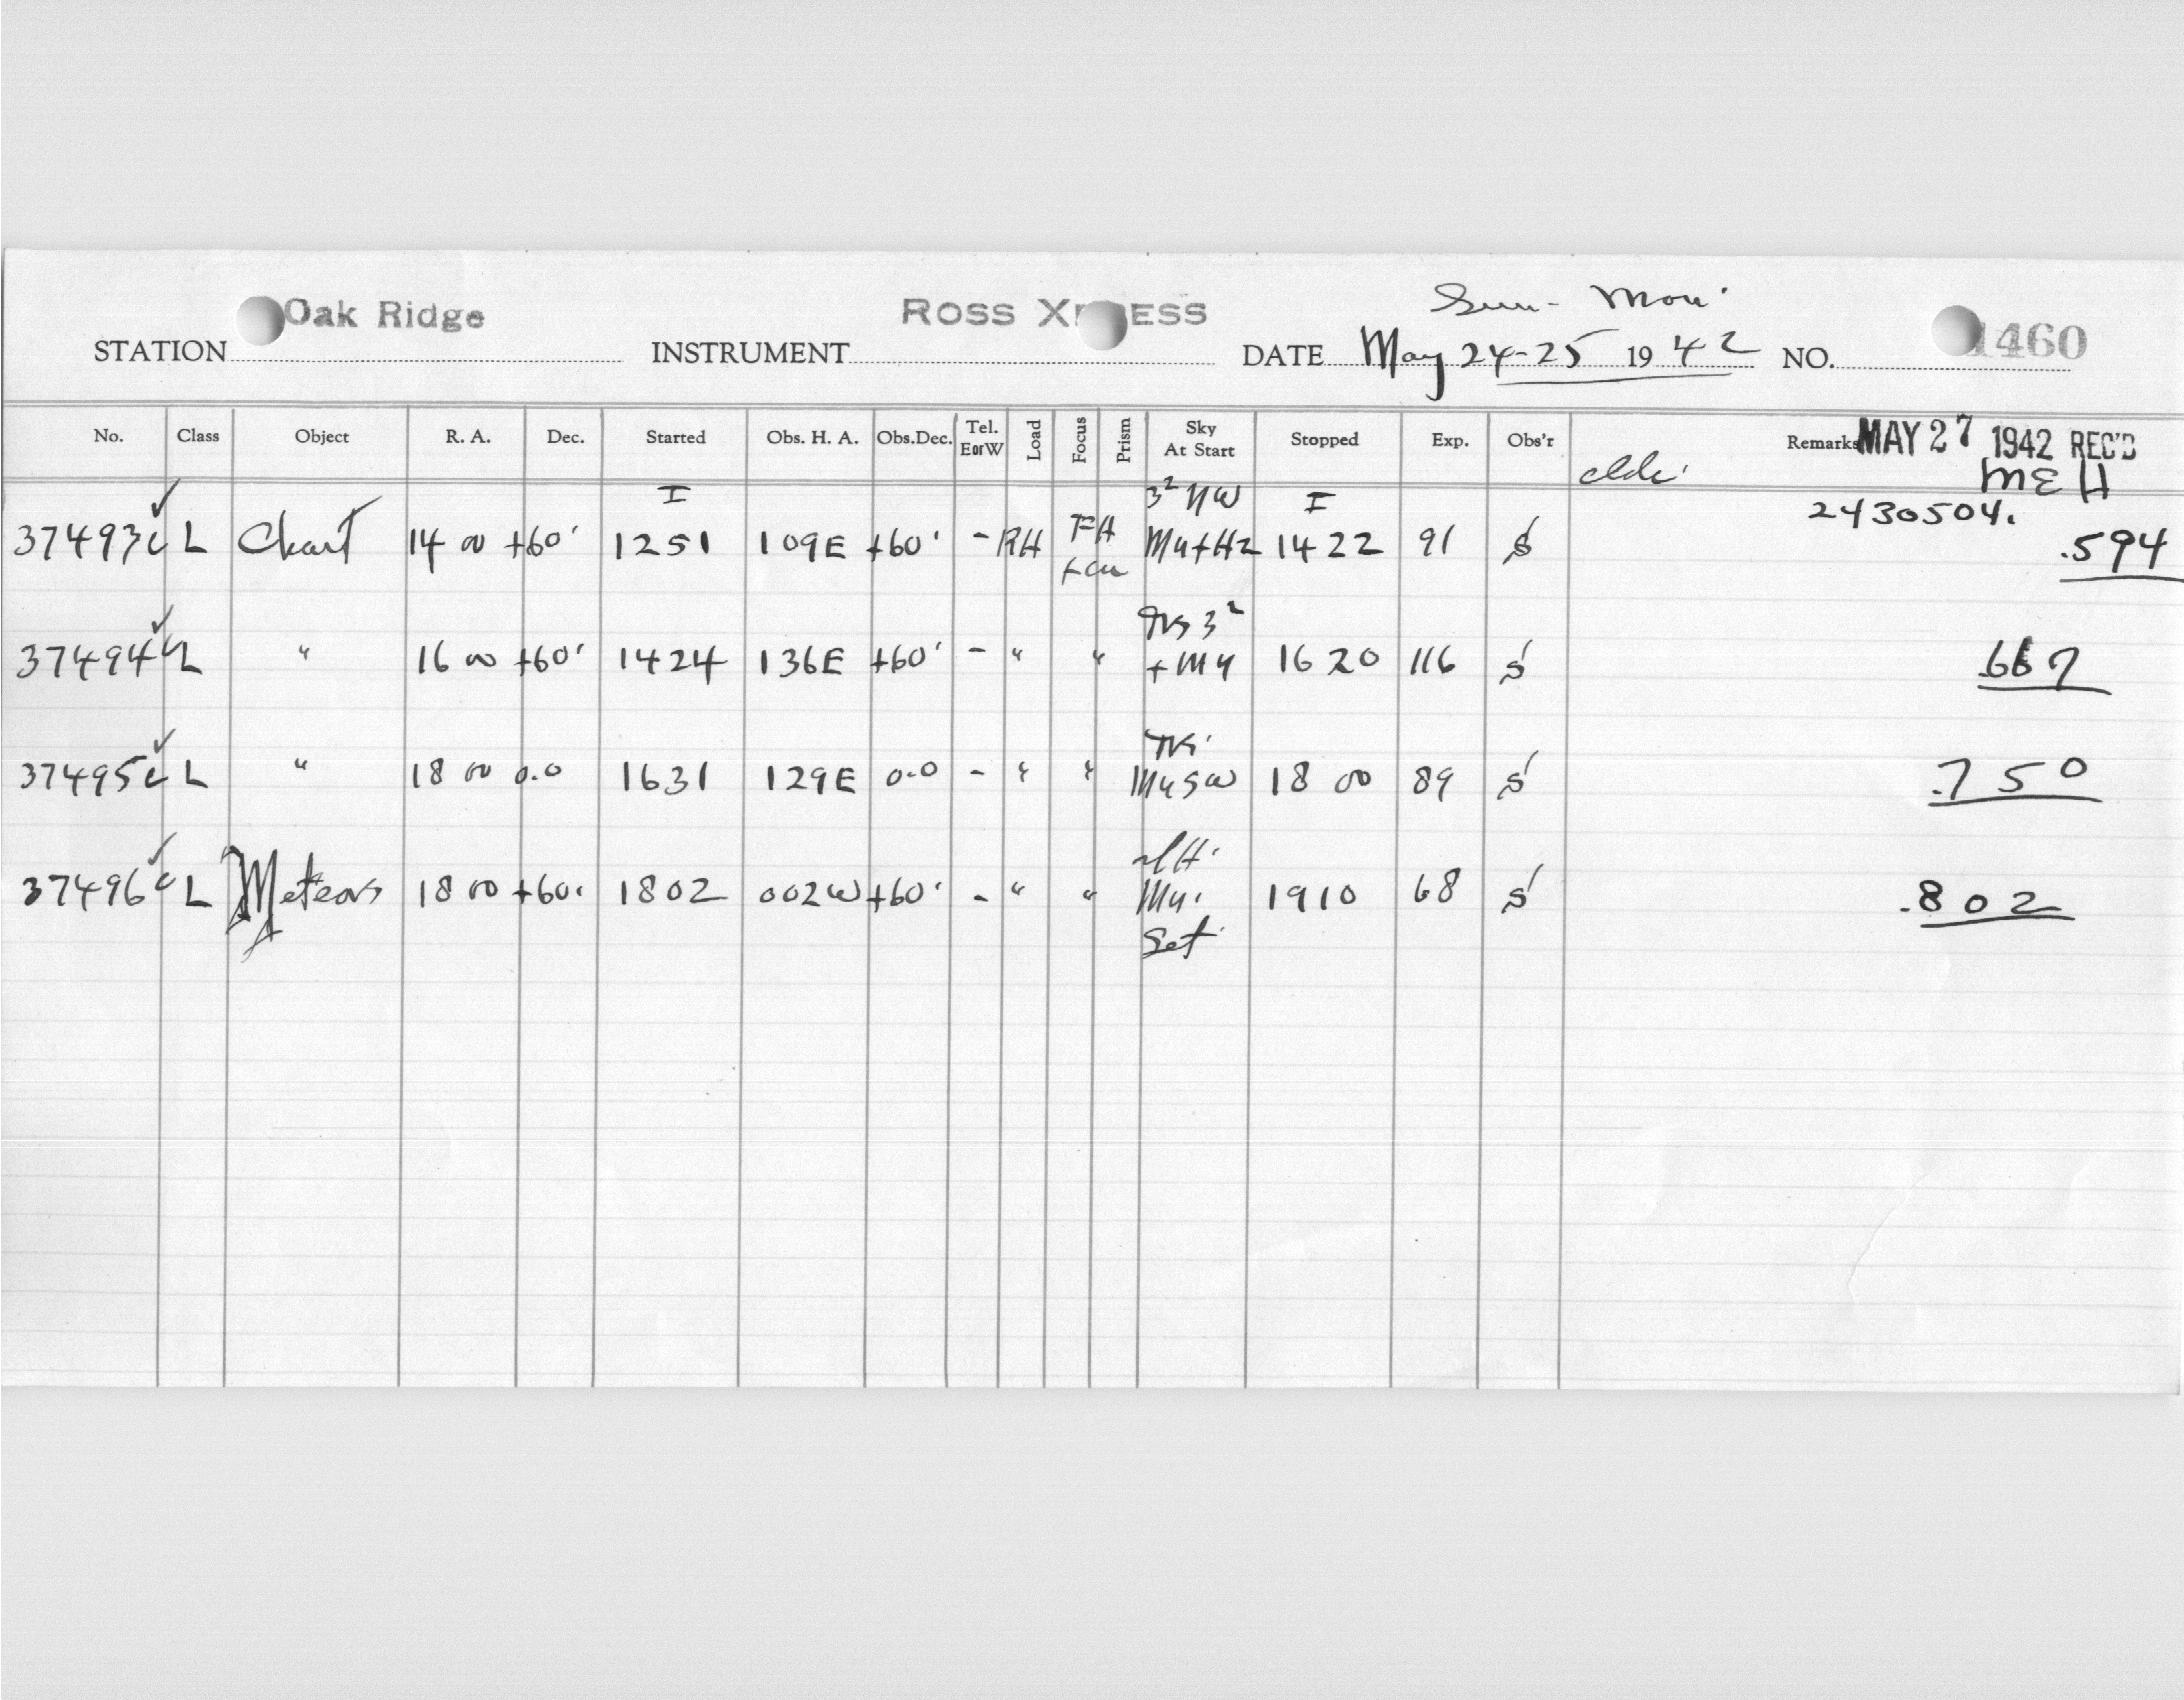 Oak Ridge ROSS X ESS Sun - Mon. 1460
STATION INSTRUMENT DATE May 24-25 1942 NO.
No. Class Object R. A. Dec. Started Obs. H. A. Obs.Dec. Tel. EorW Load Focus Prism Sky At Start Stopped Exp. Obs'r Remarks MAY 27 1942 REC'D
MEH
I 3² NW I 2430504.
37493 L Chart 14 00 +60° 1251 109E +60° - RH FH My+Hz 1422 91 S .594
3²
37494 L " 16 00 +60° 1424 136E +60° - " " +My 1620 116 S .667
37495 L " 18 00 0.0 1631 129E 0.0 - " " My SW 18 00 89 S .750
37496 L Meteors 18 00 +60° 1802 002W +60° - " " My. 1910 68 S .802
Set